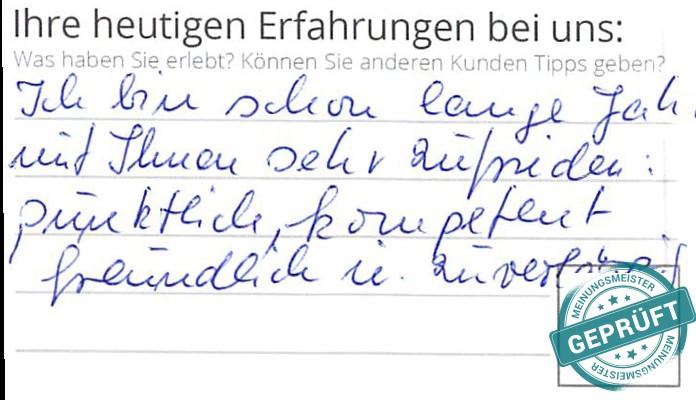 Ihre heutigen Erfahrungen bei uns:
Was haben Sie erlebt? Können Sie anderen Kunden Tipps geben?
Ich bin schon lange Jah
mit Ihnen sehr zufrieden:
pünktlich, kompetent
freundlich u. zuverlässig
MEINUNGSMEISTER
GEPRÜFT
MEINUNGSMEISTER